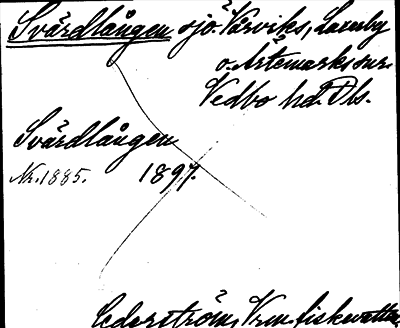 Svärdlången sjö. Vårviks, Laxarby
o. Ärtemarks snr.
Vedbo hd. Dls.
Svärdlången
Nr. 1885. 1897.
Cederström, Vrm. fiskevatten